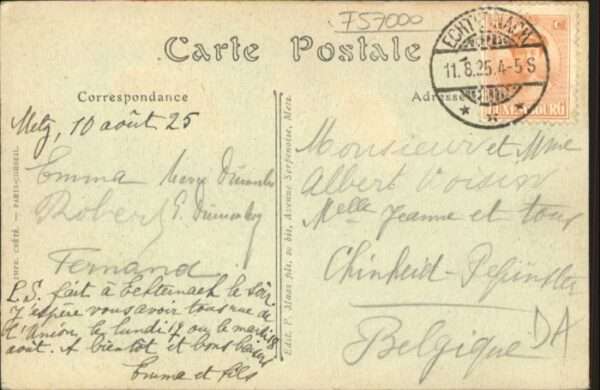 757000
Carte Postale
ECHTERNACH
11.8.25.4-5 S
LUXEMBOURG
Correspondance
Adresse
Metz, 10 août 25
Emma
Robert
Fernand
P.S. fait à Echternach le soir
J'espère vous avoir tous rue de
l'Union, le lundi 17 ou le mardi 18
août. A bientôt et bons baisers
Emma et fils
IMPR. CRÉTÉ. — PARIS-CORBEIL.
Edit. P. Maas fils, 20 bis, Avenue Serpenoise, Metz.
Monsieur et Mme
Albert Voisin
Melle Jeanne et tous
Chinheid-Pepinster
Belgique
DA